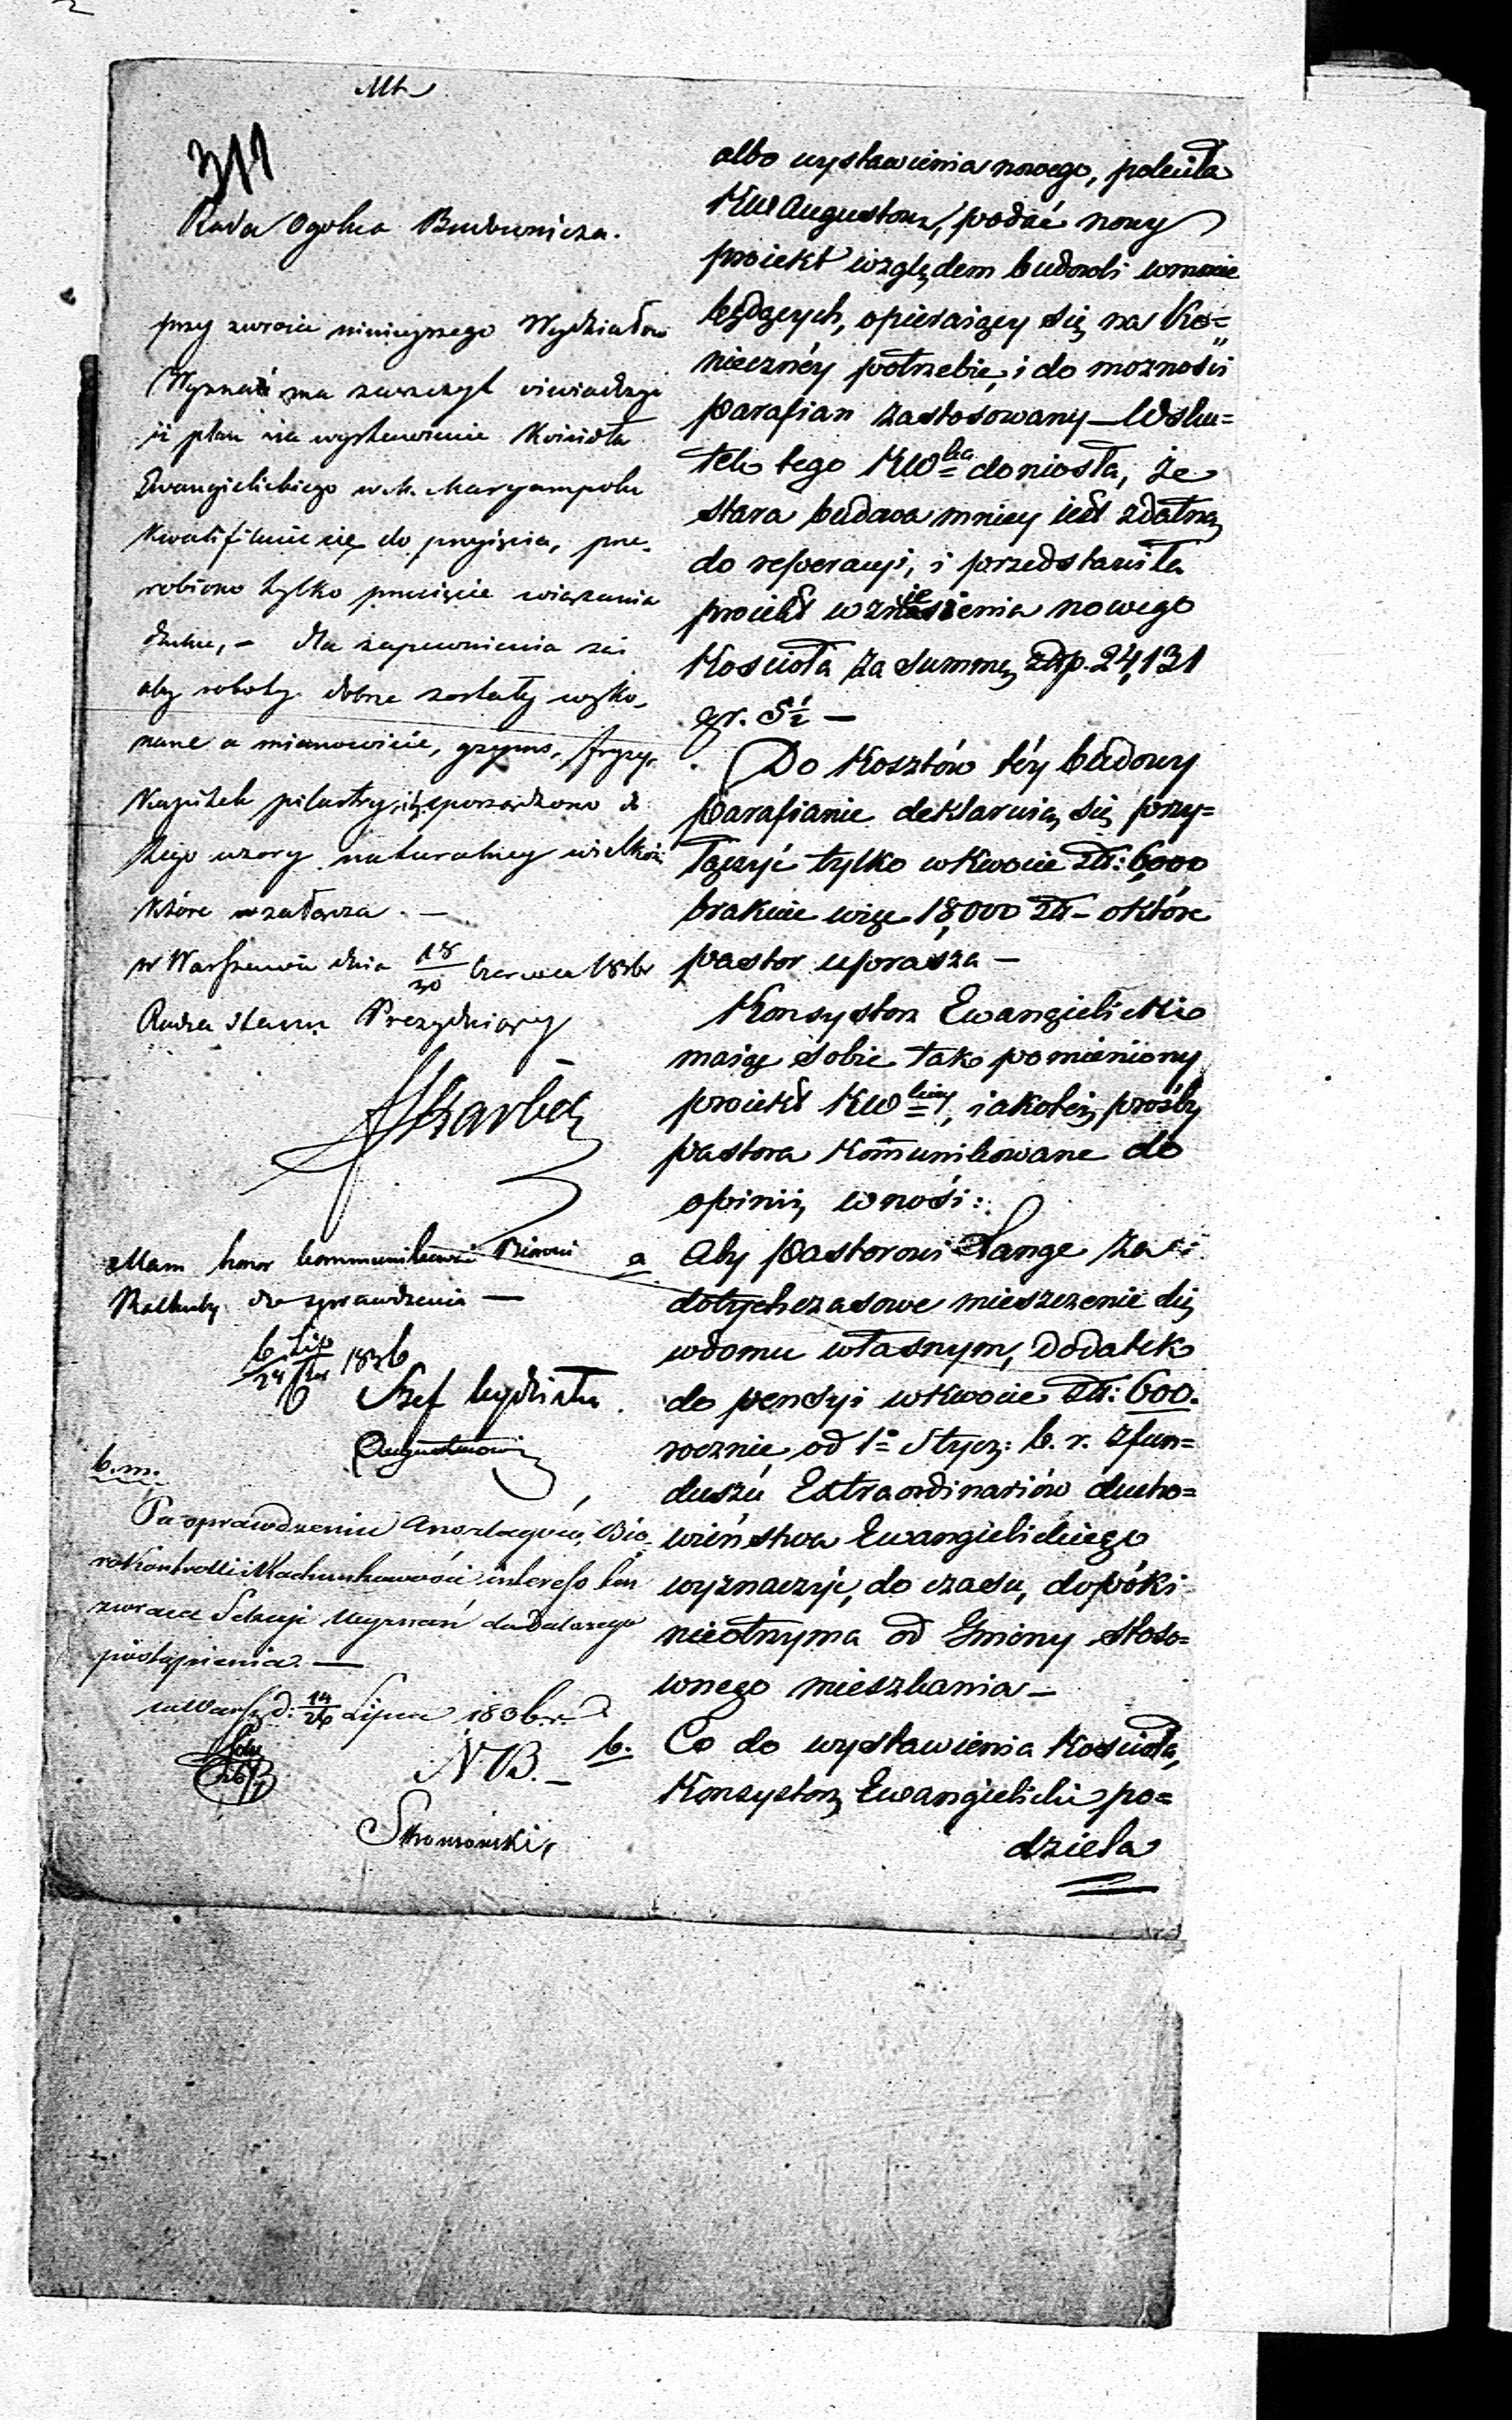 311
Rada Ogólna Budownicza.
przy zwrocie niniejszego Wydziałowi
Wyznań ma zaszczyt
iż plan na wystawienie Kościoła
Ewangielickiego w M. Maryampolu
kwalifikuie się do przyięcia, prze-
robiono tylko przecięcie wiązania
dachu, – dla zapewnienia zaś
aby roboty dobrze zostały wyko-
nane a mianowicie, gzyms,
pilastry, sporządzono do
tego wzory naturalney wielkości
które załącza. –
w Warszawie dnia 18/30 Czerwca 1836
Radca Stanu Prezyduiący
Skarbek
Mam honor kommunikować Biorowi
do sprawdzenia –
6/24 1836
Szef Wydziału
b.m.
Po sprawdzeniu Anszlagów, Bio-
ro Kontrolli i Rachunkowości interess ten
zwraca Sekcyi Wyznań do dalszego
postąpienia. –
w Warsz. d. 14/26 Lipca 1836 r.
NB. –
albo wystawienia nowego, poleciła
KW Augustow. podać nowy
proiekt względem budowli w mowie
będących, opieraiący się na Ko=
nieczney potrzebie, i do możności
parafian zastosowany – Wsku=
tek tego KW^ska doniosła, że
stara budowa mniey iest zdatną
do reperacyi, i przedstawiła
proiekt wzniesienia nowego
Kościoła za summę złp. 24,131
gr. 5½ –
Do Kosztów téy budowy
parafianie deklaruią się przy=
łączyć tylko w kwocie Zł: 6,000
brakuie więc 18,000 Zł – o które
pastor uprasza –
Konsystorz Ewangielicki
maiąc sobie tak pomieniony
proiekt KW^skiey, iakoteż prośby
pastora Kommunikowane do
opinii, wnosi:
a Aby pastorowi Lange za
dotychczasowe mieszczenie się
w domu własnym, dodatek
do pensyi w kwocie Zł: 600.
rocznie, od 1° Stycz: b. r. z fun=
duszu Extraordinariów ducho=
wieństwa Ewangielickiego
wyznaczyć, do czasu, dopóki
nieotrzyma od Gminy stoso=
wnego mieszkania –
b. Co do wystawienia Kościoła,
Konsystorz Ewangielicki po=
dziela